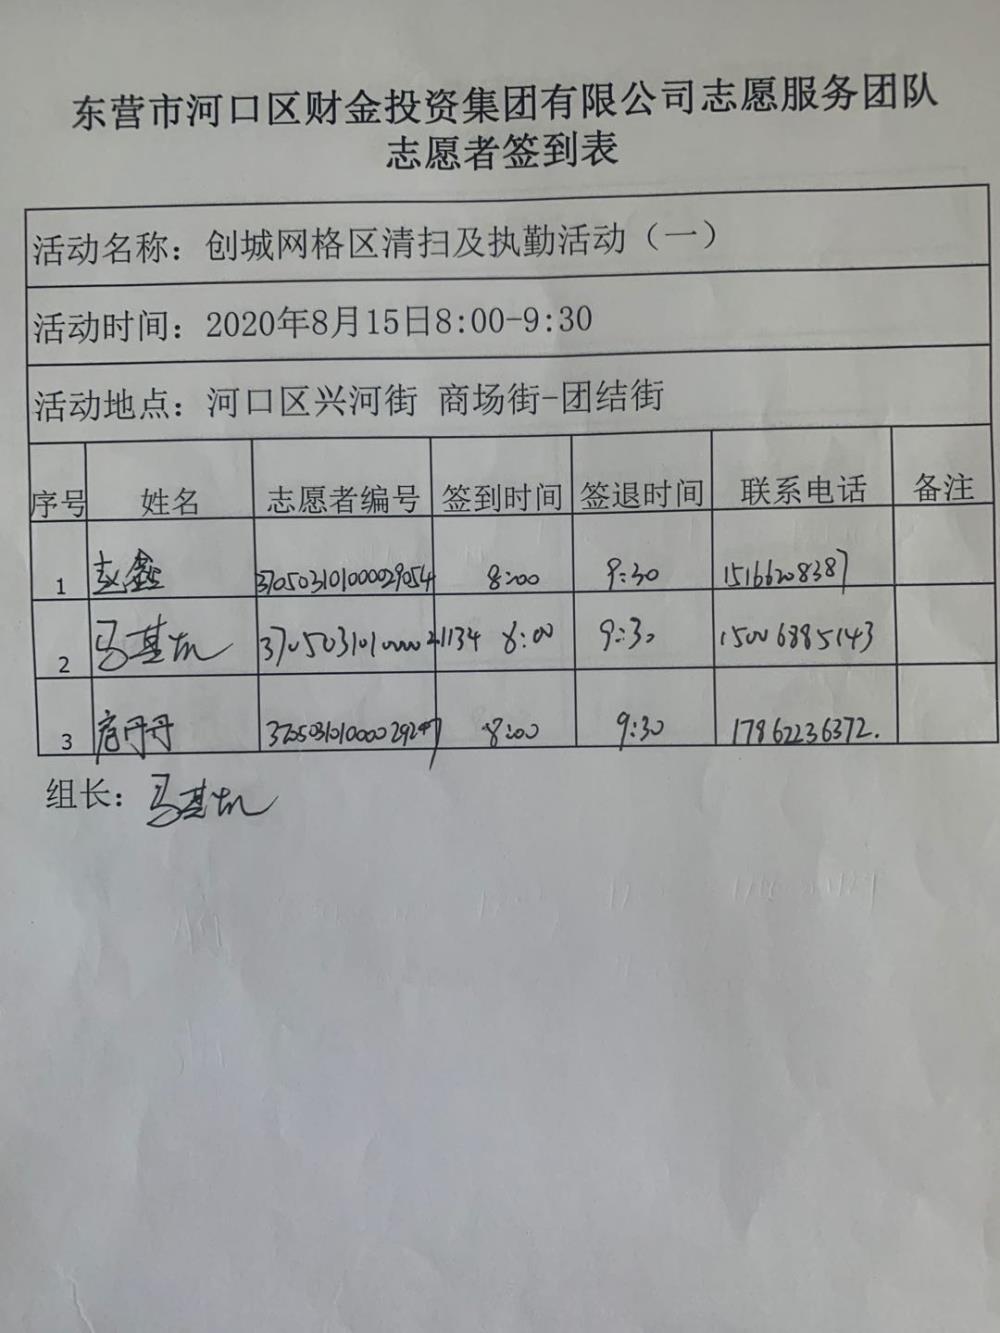 东营市河口区财金投资集团有限公司志愿服务团队
志愿者签到表
活动名称：创城网格区清扫及执勤活动（一）
活动时间：2020年8月15日8:00-9:30
活动地点：河口区兴河街 商场街-团结街
序号 姓名 志愿者编号 签到时间 签退时间 联系电话 备注
1 赵鑫 370503101000029054 8:00 9:30 15166208387
2 马基 8:00 9:30 15006885143
3 丹丹 8:00 9:30 17862236372.
组长：马基